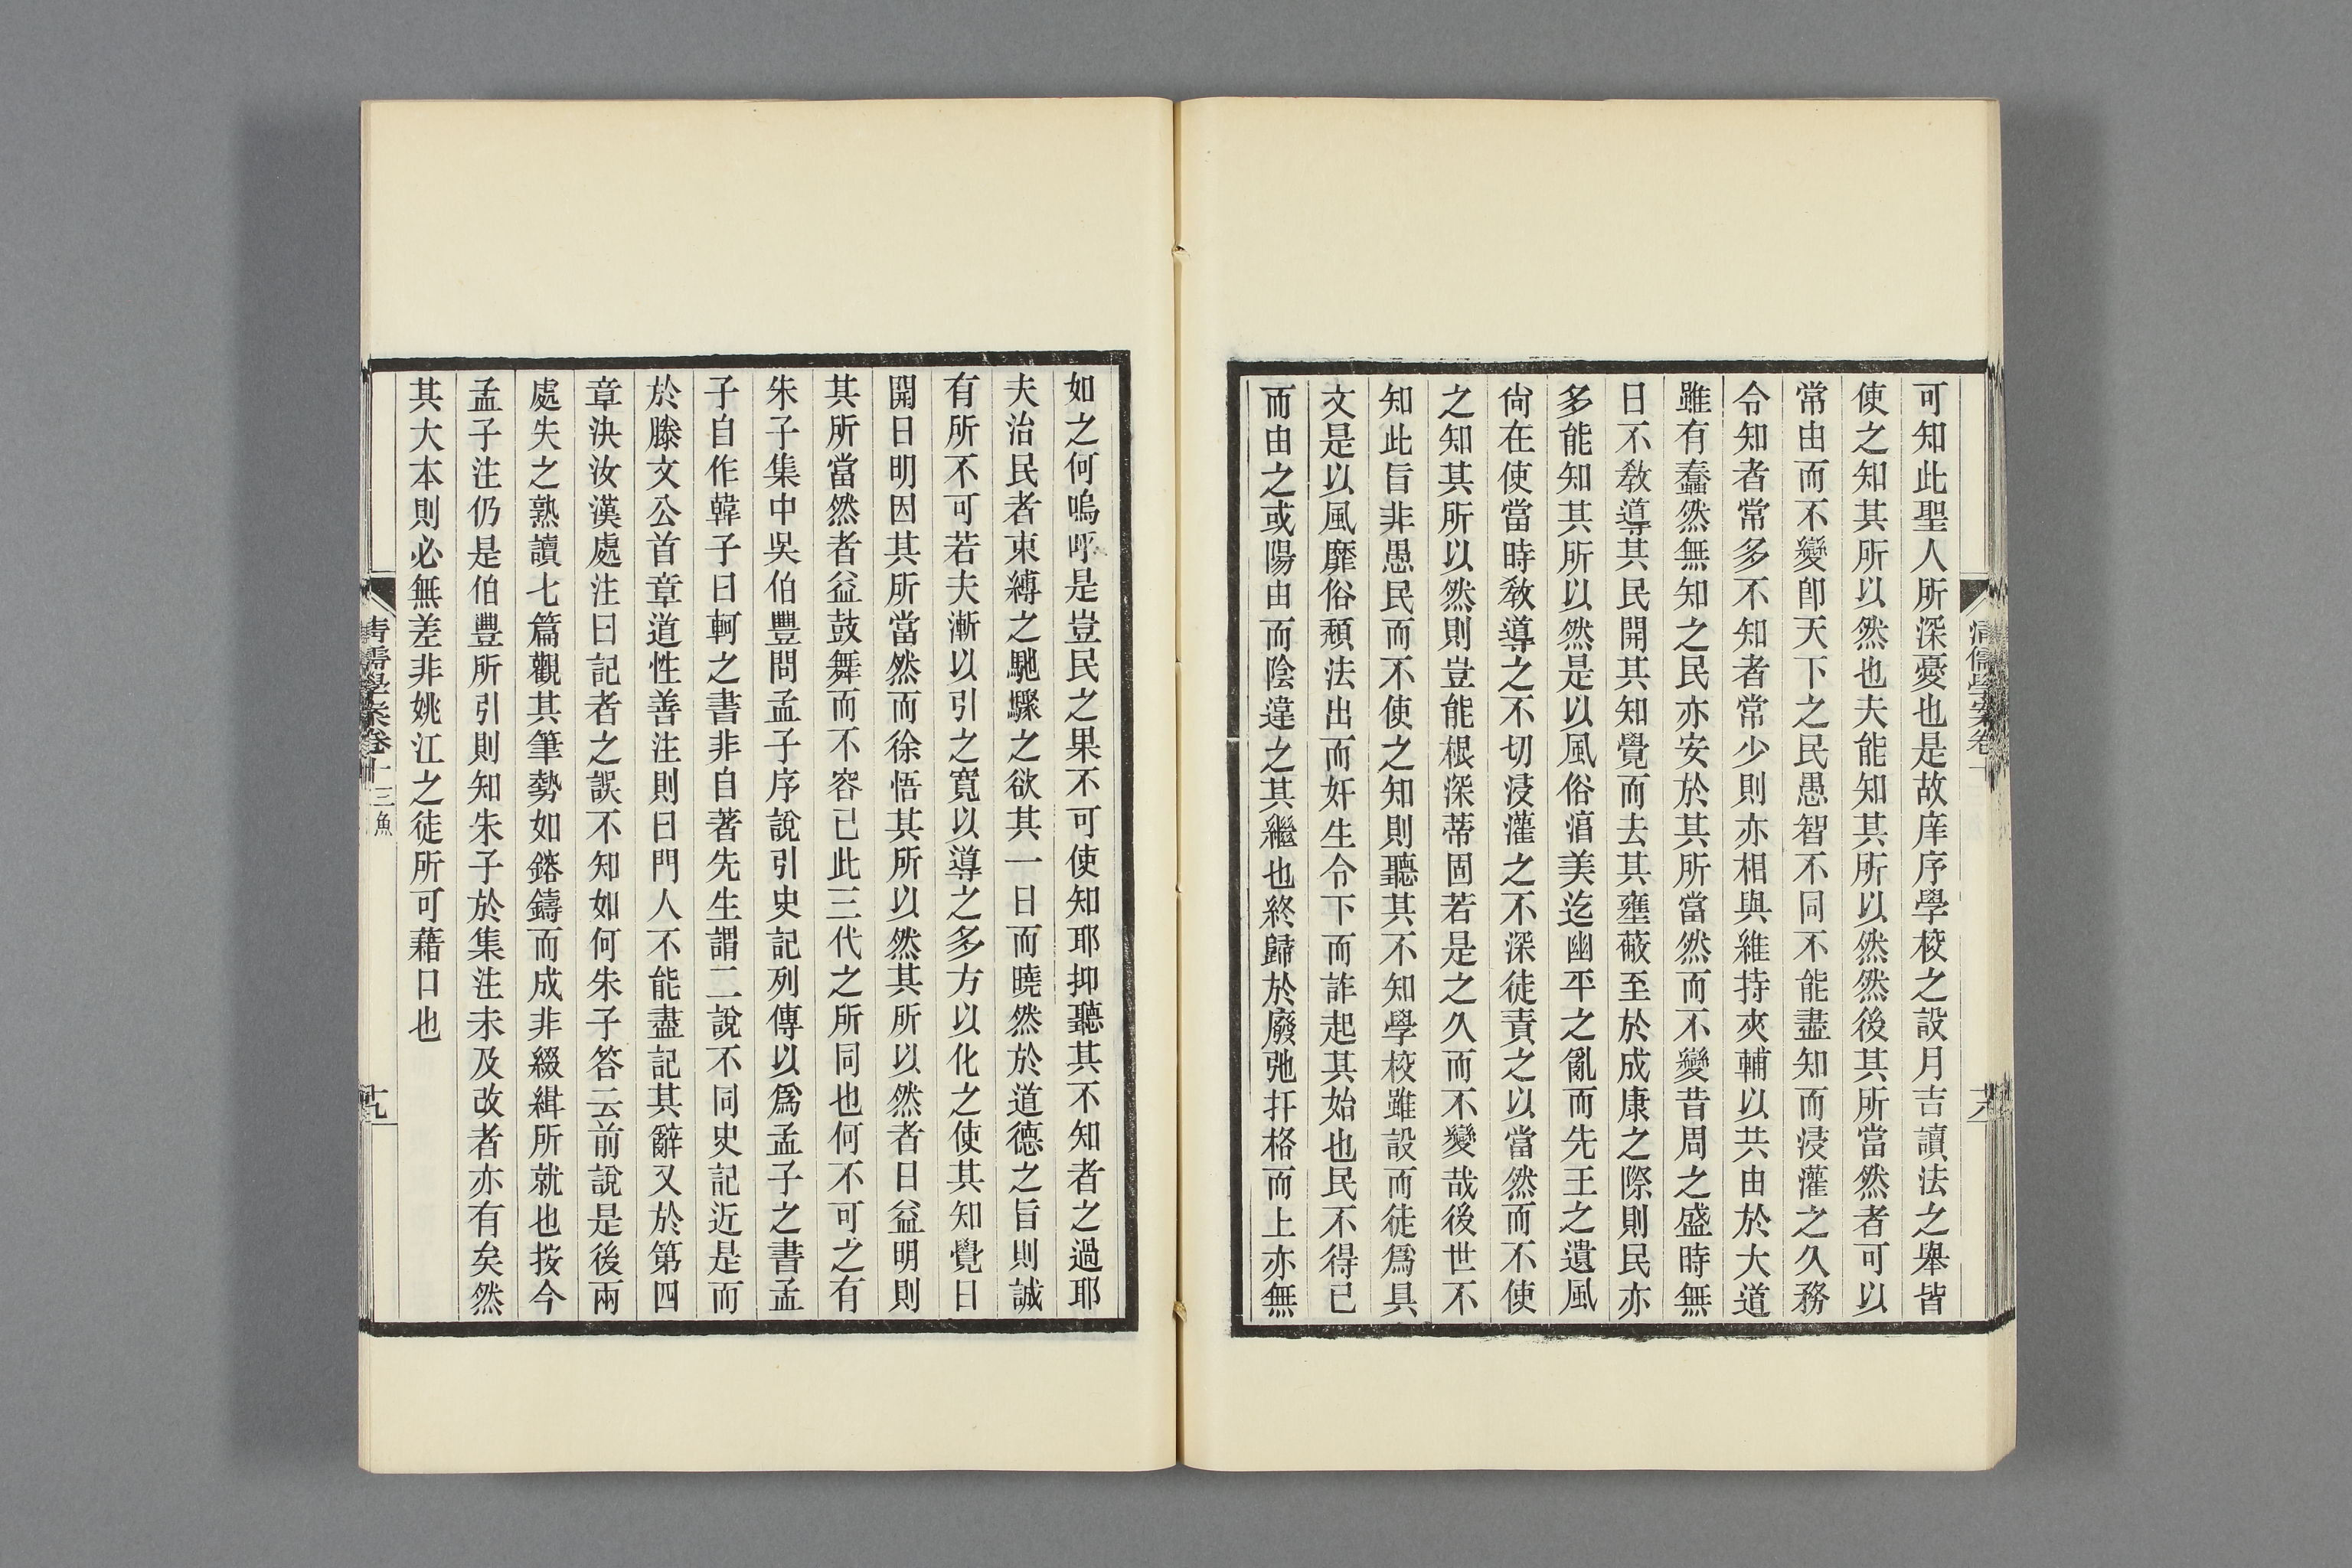 可知此聖人所深憂也是故庠序學校之設月吉讀法之舉皆
使之知其所以然也夫能知其所以然然後其所當然者可以
常由而不變卽天下之民愚智不同不能盡知而浸灌之久務
令知者常多不知者常少則亦相與維持夾輔以共由於大道
雖有蠢然無知之民亦安於其所當然而不變昔周之盛時無
日不敎導其民開其知覺而去其壅蔽至於成康之際則民亦
多能知其所以然是以風俗淳美迄幽平之亂而先王之遺風
尙在使當時敎導之不切浸灌之不深徒責之以當然而不使
之知其所以然則豈能根深蒂固若是之久而不變哉後世不
知此旨非愚民而不使之知則聽其不知學校雖設而徒爲具
文是以風靡俗頹法出而奸生令下而詐起其始也民不得已
而由之或陽由而陰違之其繼也終歸於廢弛扞格而上亦無
如之何嗚呼是豈民之果不可使知耶抑聽其不知者之過耶
夫治民者束縛之馳驟之欲其一日而曉然於道德之旨則誠
有所不可若夫漸以引之寬以導之多方以化之使其知覺日
開日明因其所當然而徐悟其所以然其所以然者日益明則
其所當然者益鼓舞而不容已此三代之所同也何不可之有
朱子集中吳伯豐問孟子序說引史記列傳以爲孟子之書孟
子自作韓子曰軻之書非自著先生謂二說不同史記近是而
於滕文公首章道性善注則曰門人不能盡記其辭又於第四
章決汝漢處注曰記者之誤不知如何朱子答云前說是後兩
處失之熟讀七篇觀其筆勢如鎔鑄而成非綴緝所就也按今
孟子注仍是伯豐所引則知朱子於集注未及改者亦有矣然
其大本則必無差非姚江之徒所可藉口也
清儒學案卷十 三魚
十九